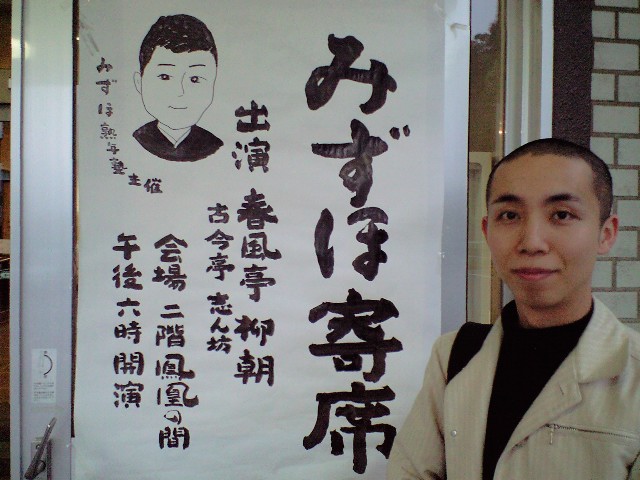 みずほ寄席
出演 春風亭 柳朝
古今亭 志ん坊
会場 二階鳳凰の間
午後六時開演
みずほ熟年塾
主催